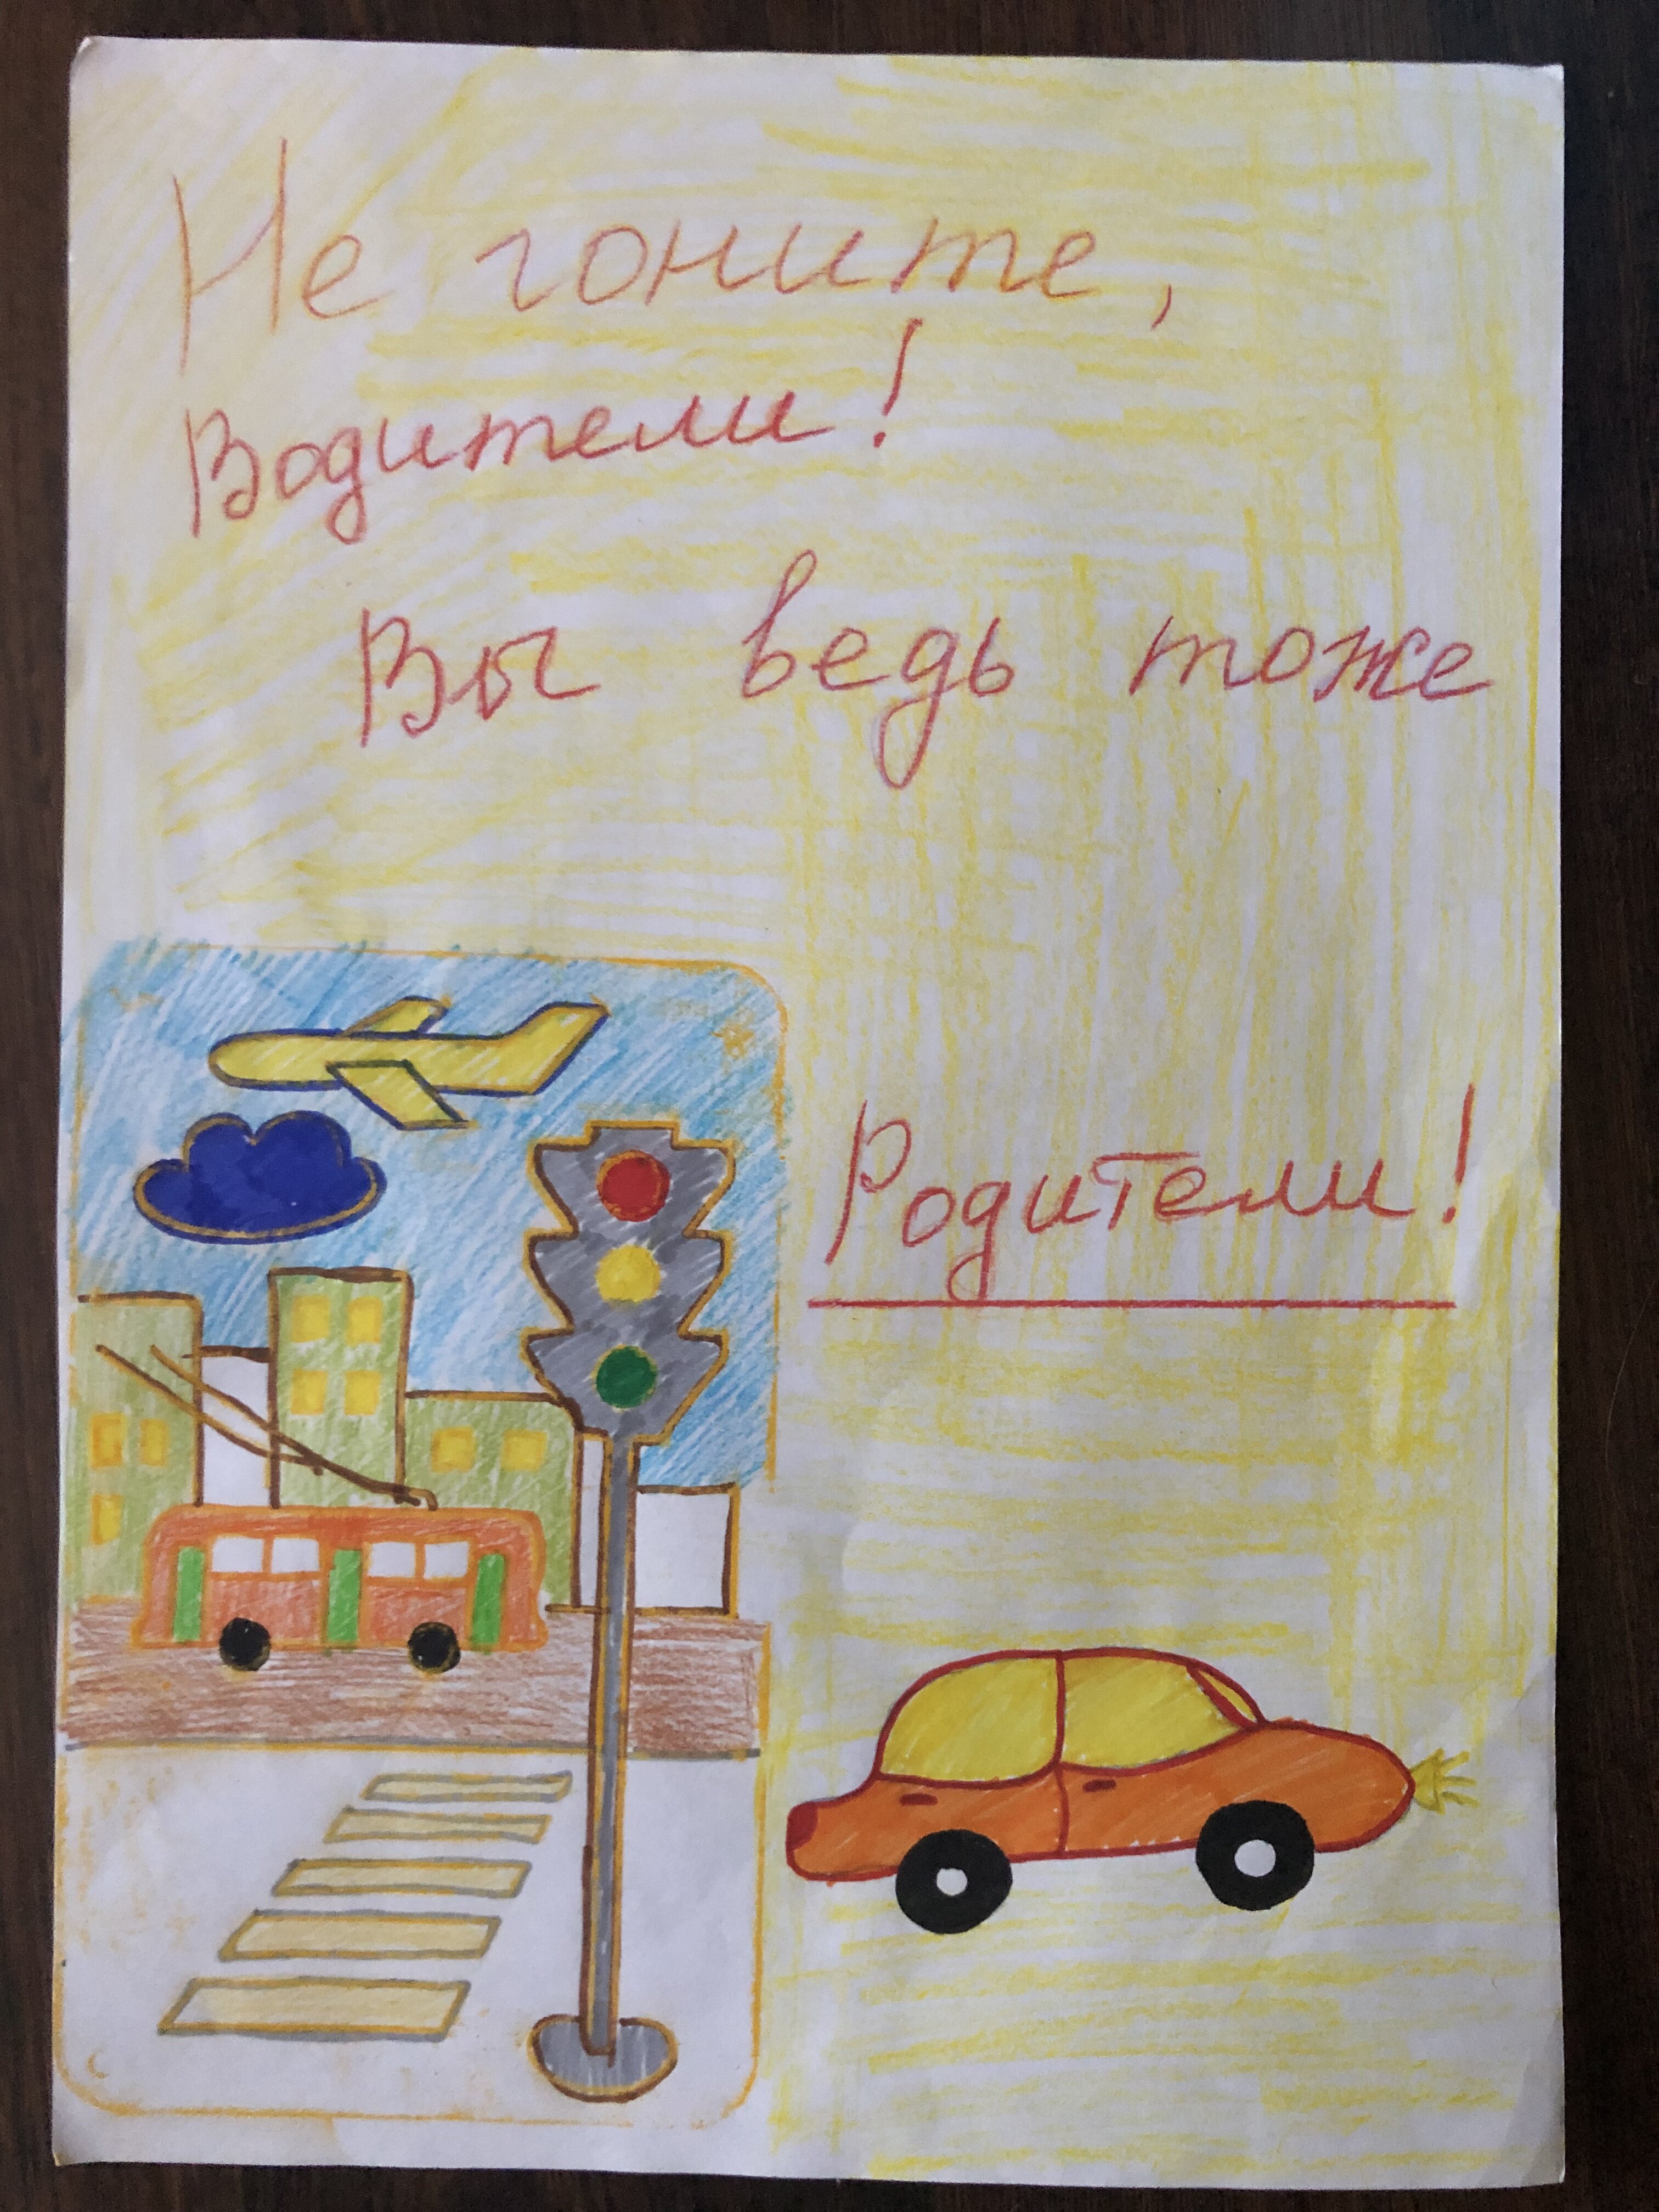 Не гоните,
Водители!
Вы ведь тоже
Родители!